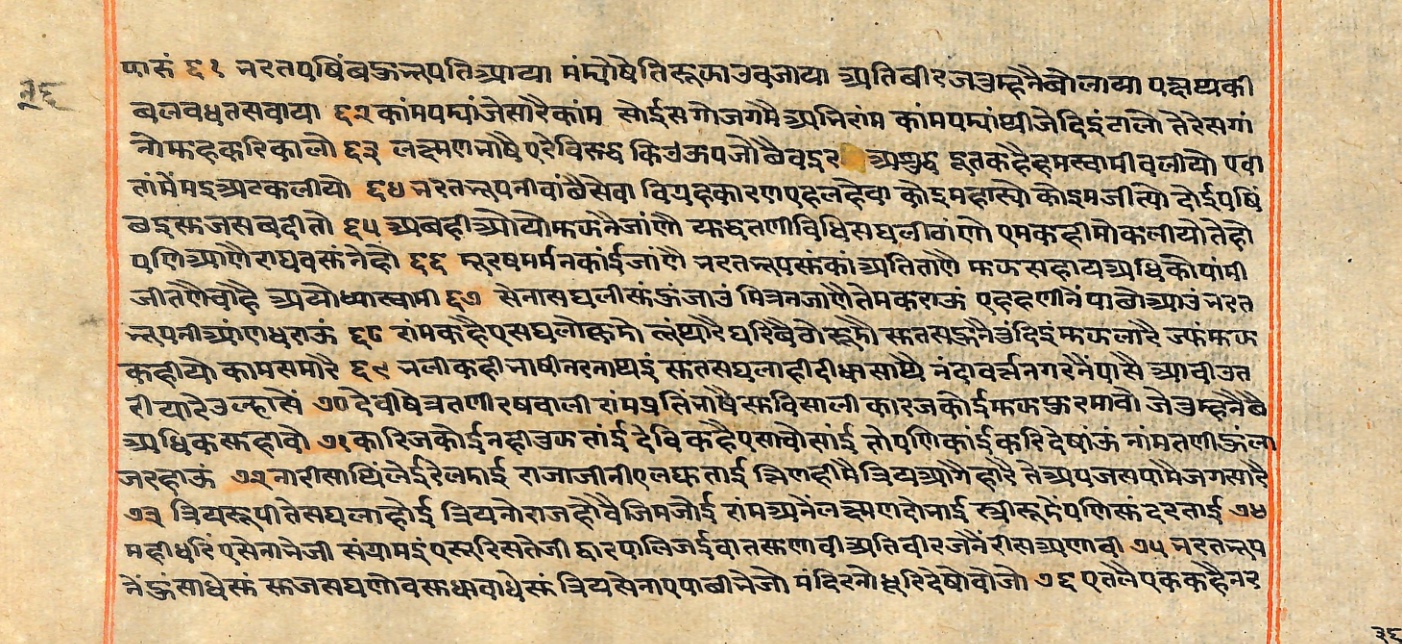 ३६
पारुं ६१ भरतपषिंबऊन्नृपतिआया मंघोषेतिरूफाउवजाया अतिबीरजउम्हनैबोलाया पक्षथकी
बलवधुतसवाया ६२ कांमपघांजेसारैकांम सोईसगोजगमै अभिरांम कांमपघांथीजेदिइंटालो तेरेसगां
नोमहकरिकालो ६३ लक्ष्मणभाषै एरेविरुद्ध किउंऊपजोबैवइर अशुद्ध इतकहैहमस्वामीवलीयो एवा
तांमेंमइअटकलीयो ६४ भरतनृपनीवांबैसेवा विग्रहकारणएहलहेवा कोइमहास्यो कोइमजीत्यो दोईपषिं
बइसजसबदीतो ६५ अबहीआयोमुझनैजांणौ युद्धतणीविधिसघलीवांणो एमकहीमोकलीयोतेहो
पणिआणैराघवसुंनेहो ६६ मूरषमर्मनकांईजांणै भरतनृपसुंकां अतितांणै मुझसहायअधिकोपांमी
जीतणैचोहै अयोध्यास्वामी ६७ सेनासघलीसुंऊंजाउं मित्रनजाणैतेमकराऊं एहहणीनेंपाबोआउं भरत
नृपनीआंणधराऊं ६८ रांमकहैएसघलोकूमो त्लंथारैघरिबैठोरूमो सुतसऊनैउंदिइंमुझलारै ज्युंमुझ
कहीयो कामसमारै ६९ भलीकहीभाषीनरनाथइं सुतसघलाहीदीधासाथै नंदावर्त्तनगरनैंपासै आवीउत
रीयारेउल्हासें ७० देवीषेत्रतणीरषवाली रांमप्रतिंभाषैसुविसाली कारजकोईमुझफुरमावो जेउम्हनैबै
अधिकसुहावो ७१ कारिजकोईनहीउकतांई देविकहैएसावोसांई तोपणिकांईकरिदेषांऊं नांमतणीऊंला
जरहाऊं ७२ नारीसाथिंलेईरेलदाई राजाजीनीएलघुताई त्रिणहीमैत्रियआगैहारै तेअपजसपामैजगसारै
७३ त्रियरूपीतेसघलाहोई त्रियनोराजहोवैजिमजोई रांमअनैंलक्ष्मणदोभाई स्त्रीरूदेंपणिसुंदरताई ७४
महीधरिंएसेनाभेजी संग्रामइंएसूरिसतेजी द्वारपालिजईवातसुणावी अतिवीरजनैंरीसअणावी ७५ भरतनृप
नेंऊंसाधेसुं सुजसघणोवसुधावाधेसुं त्रियसेनाएपाबीभेजो मंदिरनोधूरिदेषोवोजो ७६ एतलैएककहैनर
३६